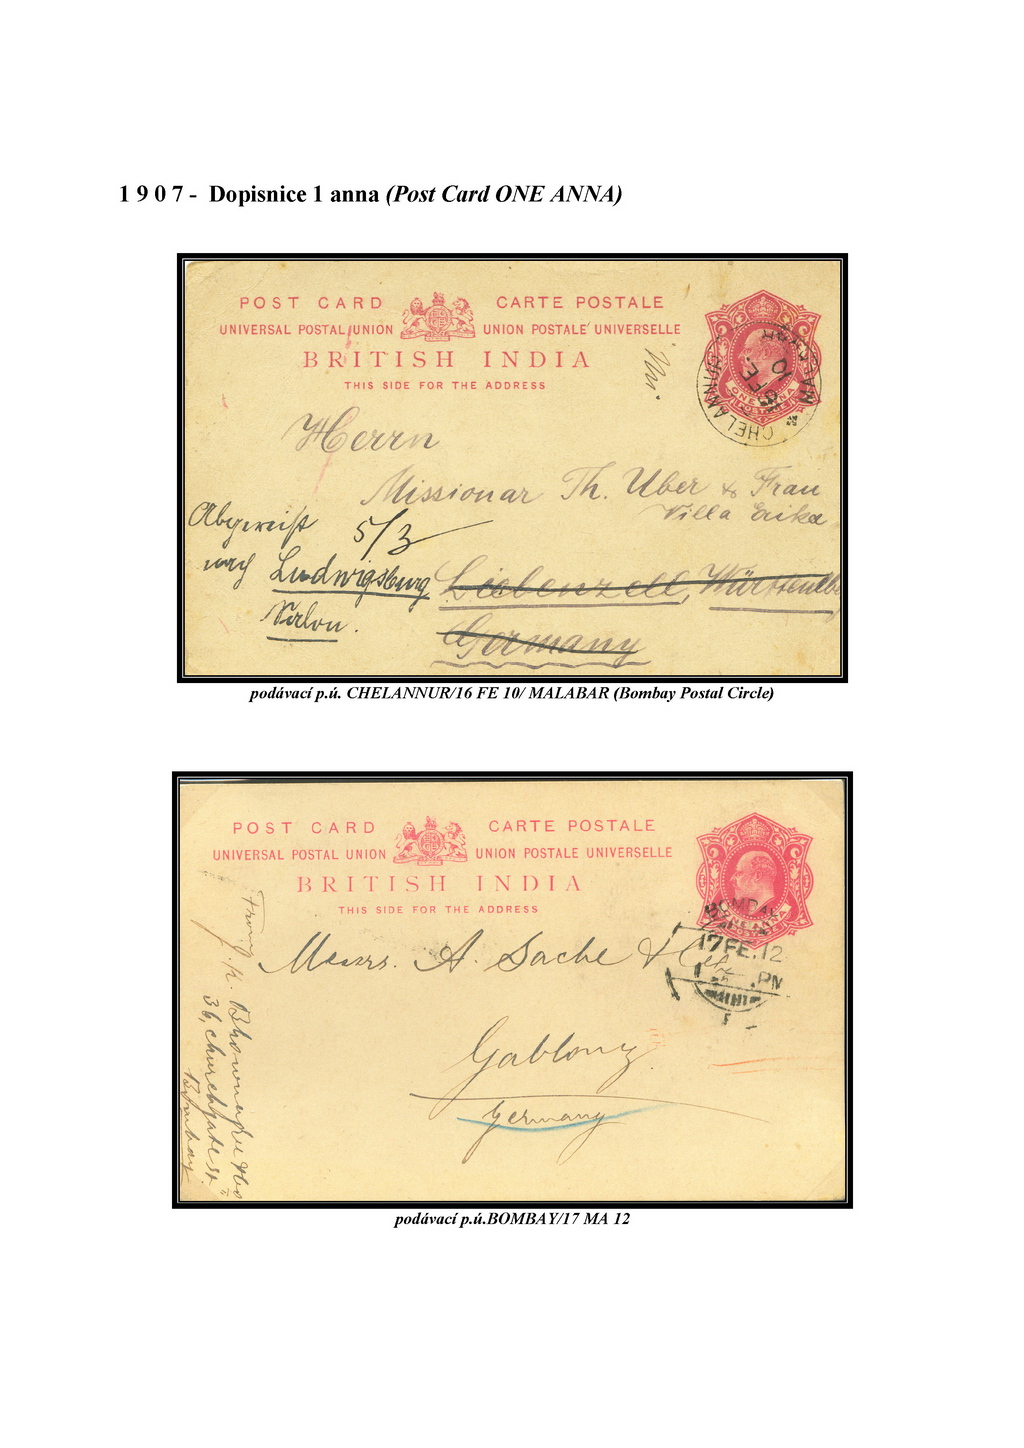 1 9 0 7 - Dopisnice 1 anna (Post Card ONE ANNA)
POST CARD CARTE POSTALE
UNIVERSAL POSTAL UNION UNION POSTALE UNIVERSELLE
BRITISH INDIA
THIS SIDE FOR THE ADDRESS
ONE ANNA
POSTAGE
CHELANNUR
FE.
10
Herrn
Missionar Th. Uber & Frau
Villa Erika
Abgereist 5/3
nach Ludwigsburg
Salon.
Liebenzell, Württemberg
Germany
podávací p.ú. CHELANNUR/16 FE 10/ MALABAR (Bombay Postal Circle)
POST CARD CARTE POSTALE
UNIVERSAL POSTAL UNION UNION POSTALE UNIVERSELLE
BRITISH INDIA
THIS SIDE FOR THE ADDRESS
ONE ANNA
POSTAGE
BOMBAY
17 FE. 12
PM
Messrs. A. Sache & Co
Gablonz
Germany
From J. K.
36, Churchgate St.
Bombay
podávací p.ú.BOMBAY/17 MA 12